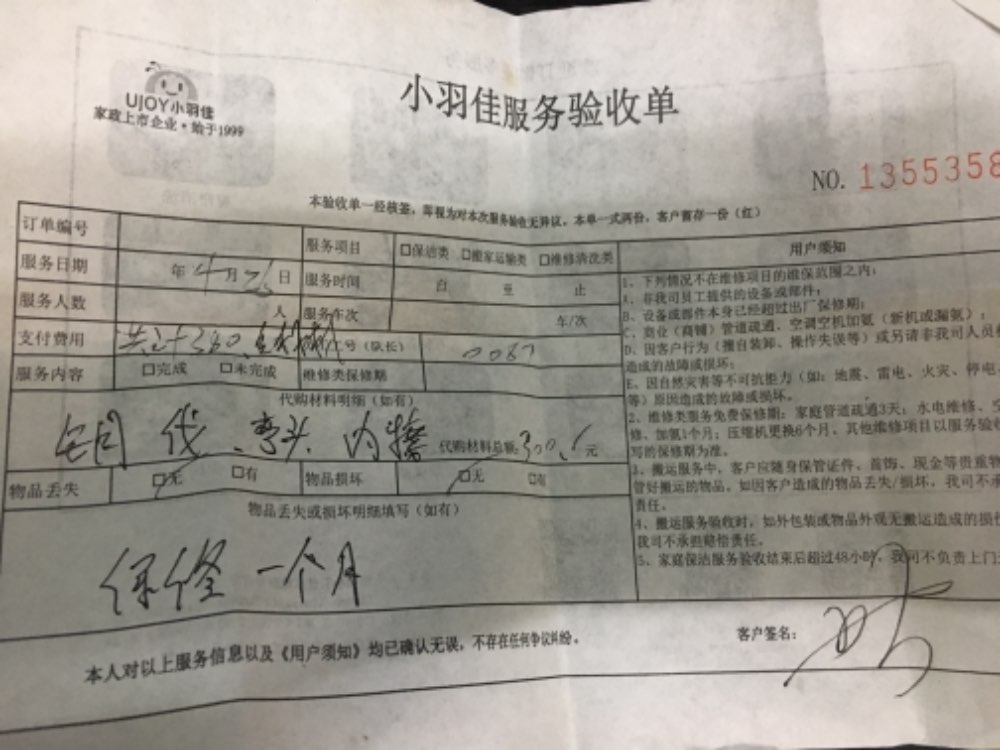 UJOY小羽佳
家政上市企业·始于1999
小羽佳服务验收单
NO. 1355358
本验收单一经核签，即视为对本次服务验收无异议，本单一式两份，客户留存一份（红）
订单编号
服务项目 □保洁类 □搬家运输类 □维修清洗类
服务日期 年4月26日
服务时间 自 至 止
服务人数 人
服务车次 车/次
支付费用
号（队长） 0087
服务内容 □完成 □未完成
维修类保修期
代购材料明细（如有）
弯头
代购材料总额： 300 元
物品丢失 □无 □有
物品损坏 □无 □有
物品丢失或损坏明细填写（如有）
保修一个月
用户须知
1、下列情况不在维修项目的维保范围之内：
A、非我司员工提供的设备或部件；
B、设备或部件本身已经超过出厂保修期；
C、商业（商铺）管道疏通、空调空机加氟（新机或漏氟）；
D、因客户行为（擅自装卸、操作失误等）或另请非我司人员
造成的故障或损坏；
E、因自然灾害等不可抗拒力（如：地震、雷电、火灾、停电
等）原因造成的故障或损坏。
2、维修类服务免费保修期：家庭管道疏通3天；水电维修、
修、加氟1个月；压缩机更换6个月。其他维修项目以服务验收
写的保修期为准。
3、搬运服务中，客户应随身保管证件、首饰、现金等贵重物
管好搬运的物品。如因客户造成的物品丢失/损坏，我司不承
责任。
4、搬运服务验收时，如外包装或物品外观无搬运造成的损
我司不承担赔偿责任。
5、家庭保洁服务验收结束后超过48小时，我司不负责上门
本人对以上服务信息以及《用户须知》均已确认无误，不存在任何争议纠纷。
客户签名：